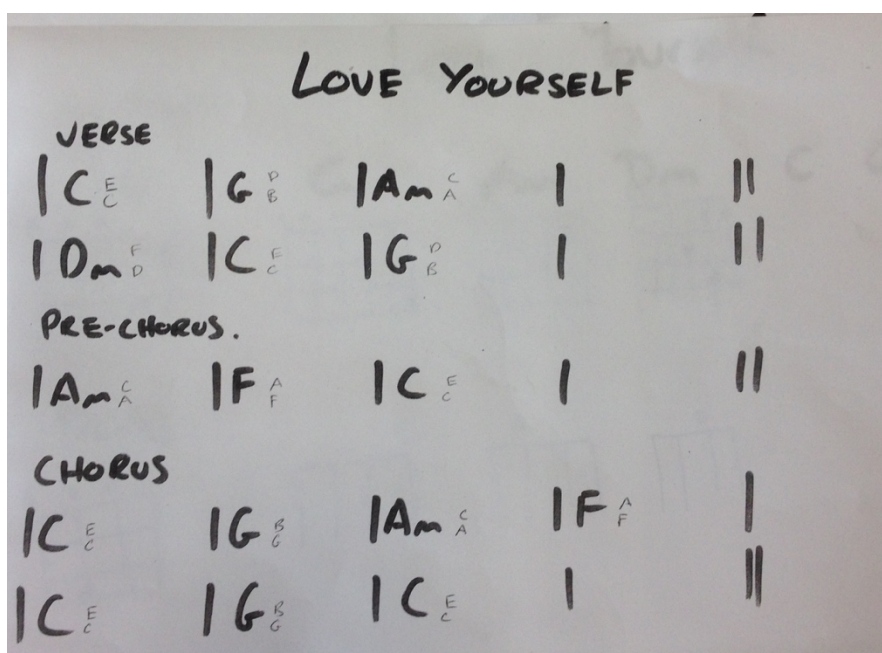 LOVE YOURSELF
VERSE
| C E C | G D B | Am C A | ||
| Dm F D | C E C | G D B | ||
PRE-CHORUS.
| Am C A | F A F | C E C | ||
CHORUS
| C E C | G B G | Am C A | F A F |
| C E C | G B G | C E C | ||